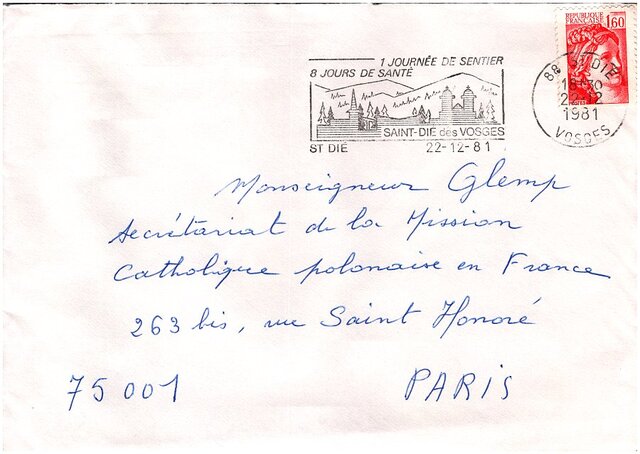 1 JOURNÉE DE SENTIER
8 JOURS DE SANTÉ
SAINT-DIÉ des VOSGES
ST DIÉ 22-12-81
REPUBLIQUE
FRANÇAISE
1,60
88 ST DIE
18H30
22-12
1981
VOSGES
Monseigneur Glemp
secrétariat de la Mission
Catholique polonaise en France
263 bis, rue Saint Honoré
75001 PARIS